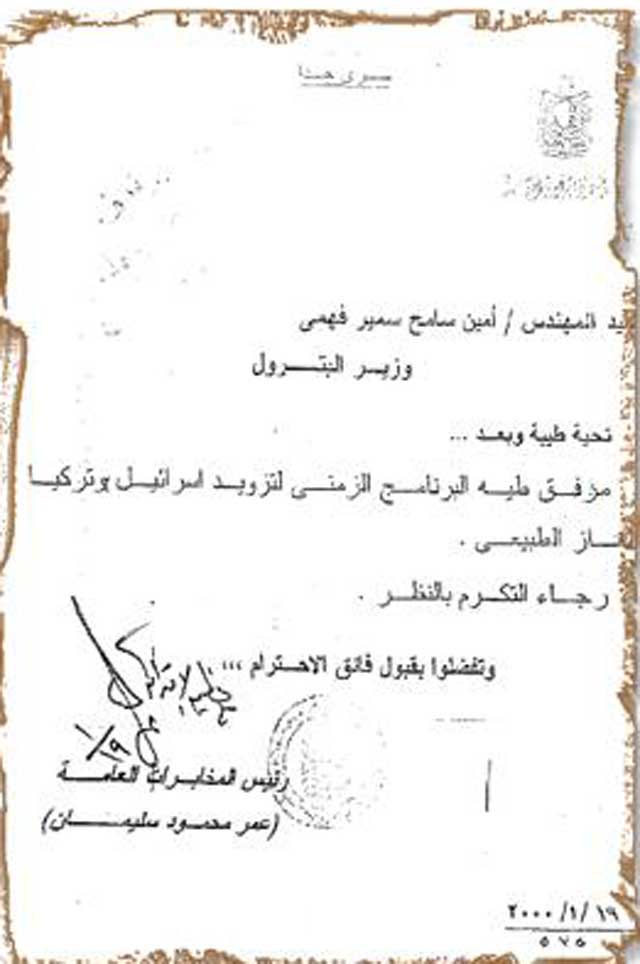 سرى جدا
يد المهندس / أمين سامح سمير فهمى
وزير البترول
تحية طيبة وبعد ...
مرفق طيه البرنامج الزمنى لتزويد اسرائيل وتركيا
ـاز الطبيعى .
رجاء التكرم بالنظر .
وتفضلوا بقبول فائق الاحترام ،،،
١/١٩
رئيس المخابرات العامة
(عمر محمود سليمان)
٢٠٠٠/١/١٩
٥٧٥